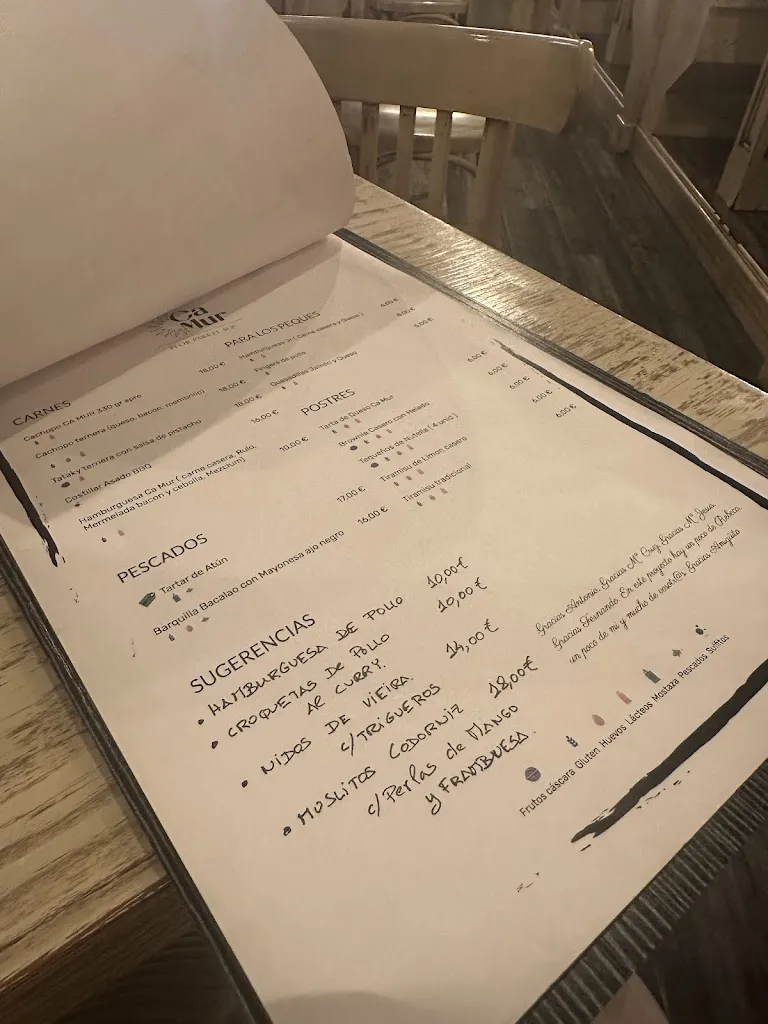 Ca
Mur
CARNES
Cachopo CA MUR 330 gr apro
18,00 €
Cachopo ternera (queso, bacon, membrillo)
18,00 €
Tataky ternera con salsa de pistacho
18,00 €
Costillar Asado BBQ
16,00 €
Hamburguesa Ca Mur ( carne casera, Rulo,
Mermelada bacon y cebolla, Mezclum)
10,00 €
PESCADOS
Tartar de Atún
17,00 €
Barquilla Bacalao con Mayonesa ajo negro
16,00 €
PARA LOS PEQUES
Hamburguesa Jr ( Carne casera y Queso )
Fingers de pollo
Quesadillas Jamón y Queso
5,00 €
POSTRES
Tarta de Queso Ca Mur
6,00 €
Brownie Casero con Helado
6,00 €
Tequeños de Nutella ( 4 unid )
6,00 €
Tiramisu de Limon casero
6,00 €
Tiramisu tradicional
6,00 €
SUGERENCIAS
• HAMBURGUESA DE POLLO 10,00€
• CROQUETAS DE POLLO 10,00€
AL CURRY.
• NIDOS DE VIEIRA. 14,00€
c/TRIGUEROS
• MUSLITOS CODORNIZ 18,00€
c/Perlas de MANGO
y FRAMBUESA.
Gracias Antonio, Gracias Mª Cruz, Gracias Mª Jesus,
Gracias Fernando. En este proyecto hay un poco de Rebeca,
un poco de mi y mucho de vosotr@s. Gracias Amiguito
Frutos cáscara Gluten Huevos Lácteos Mostaza Pescados Sulfitos